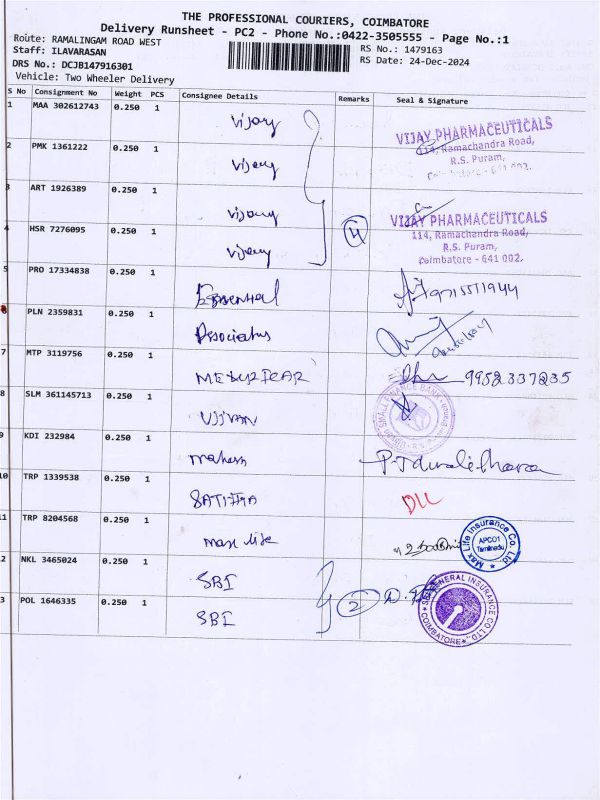 THE PROFESSIONAL COURIERS, COIMBATORE
Delivery Runsheet - PC2 - Phone No.:0422-3505555 - Page No.:1
Route: RAMALINGAM ROAD WEST
Staff: ILAVARASAN
RS No.: 1479163
DRS No.: DCJB147916301
RS Date: 24-Dec-2024
Vehicle: Two Wheeler Delivery
S No Consignment No Weight PCS Consignee Details Remarks Seal & Signature
1 MAA 302612743 0.250 1 Vijay
VIJAY PHARMACEUTICALS
114, Ramachandra Road,
R.S. Puram,
Coimbatore - 641 002.
2 PMK 1361222 0.250 1 Vijay
3 ART 1926389 0.250 1 Vijay
4 HSR 7276095 0.250 1 Vijay 4
VIJAY PHARMACEUTICALS
114, Ramachandra Road,
R.S. Puram,
Coimbatore - 641 002.
5 PRO 17334838 0.250 1 Essential
6 PLN 2359831 0.250 1 Associates
7 MTP 3119756 0.250 1 9952337235
8 SLM 361145713 0.250 1 UJJIVAN
SMALL FINANCE BANK
9 KDI 232984 0.250 1 Mahesh
10 TRP 1339538 0.250 1
11 TRP 8204568 0.250 1 Max life
Max Life Insurance Co. Ltd
APC01
Tamilnadu
12 NKL 3465024 0.250 1 SBI
13 POL 1646335 0.250 1 SBI 2
SBI GENERAL INSURANCE CO LTD
COIMBATORE